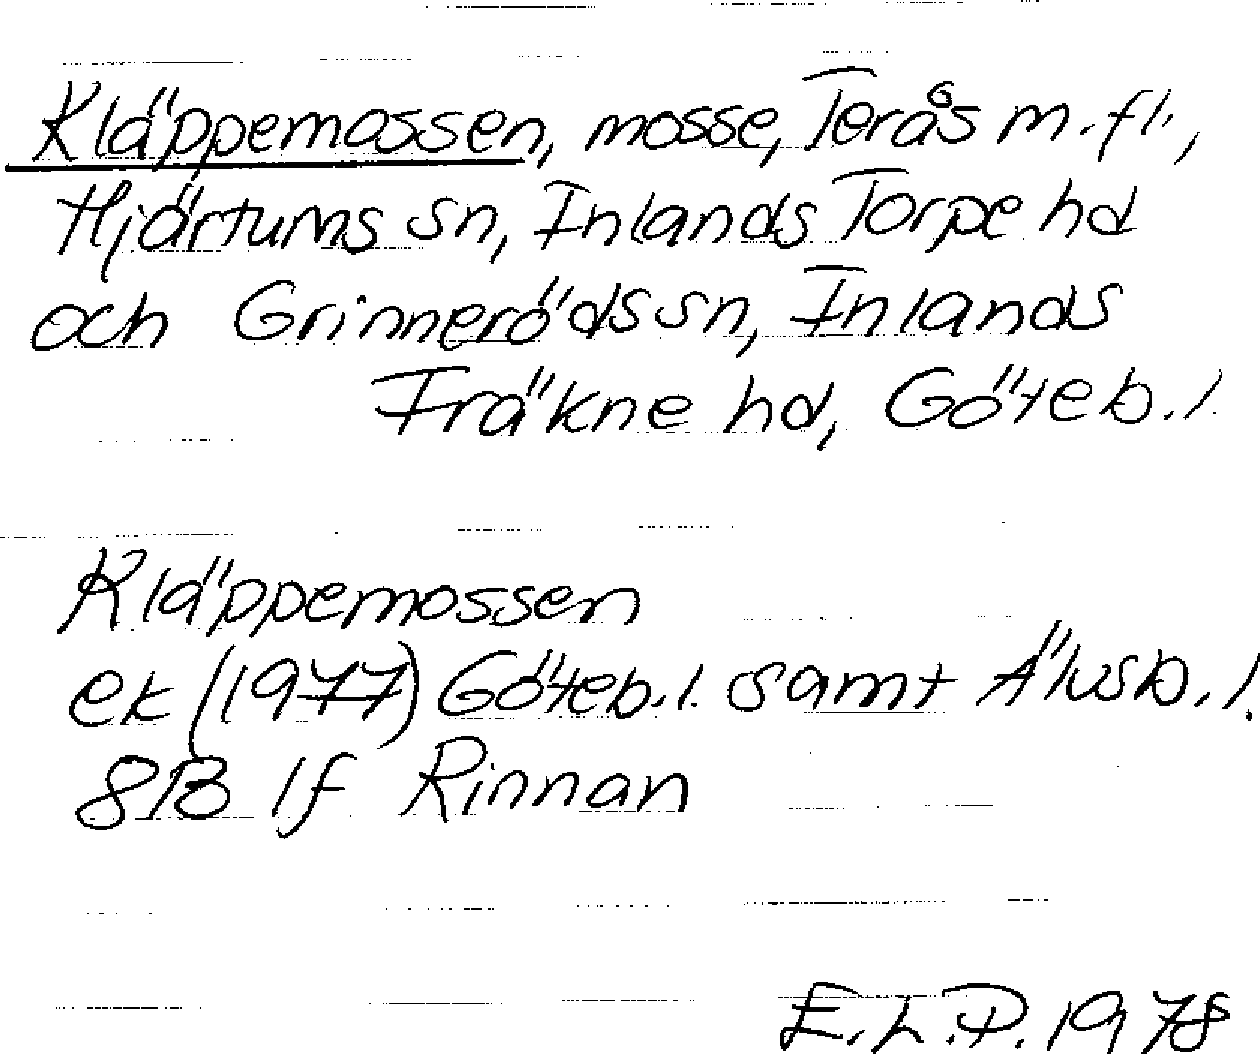 Kläppemossen, mosse, Terås m.fl.,
Hjärtums sn, Inlands Torpe hd
och Grinneröds sn, Inlands
Fräkne hd, Göteb.l.
Kläppemossen
ek (1977) Göteb.l. samt Älvsb.l.
8B 1f Rinnan
E.L.P. 1978